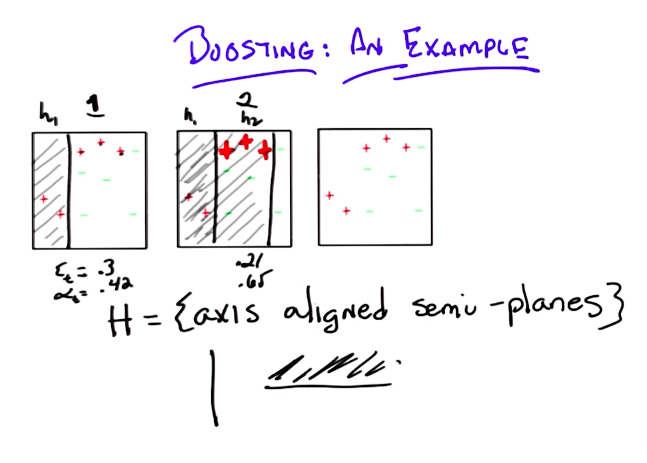 BOOSTING: AN EXAMPLE
h₁ 1
h₁ 2 h₂
εₜ = .3
αₜ = .42
.21
.65
H = {axis aligned semi-planes}